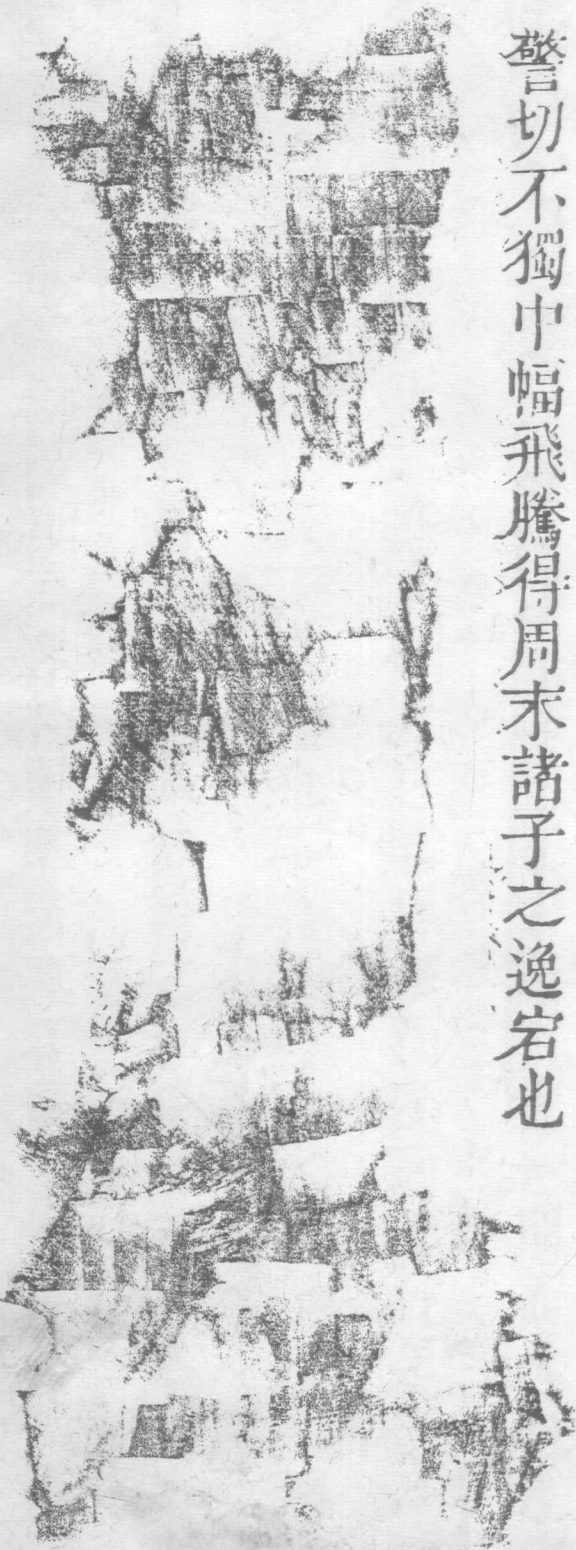 警切不獨中幅飛騰得周末諸子之逸宕也